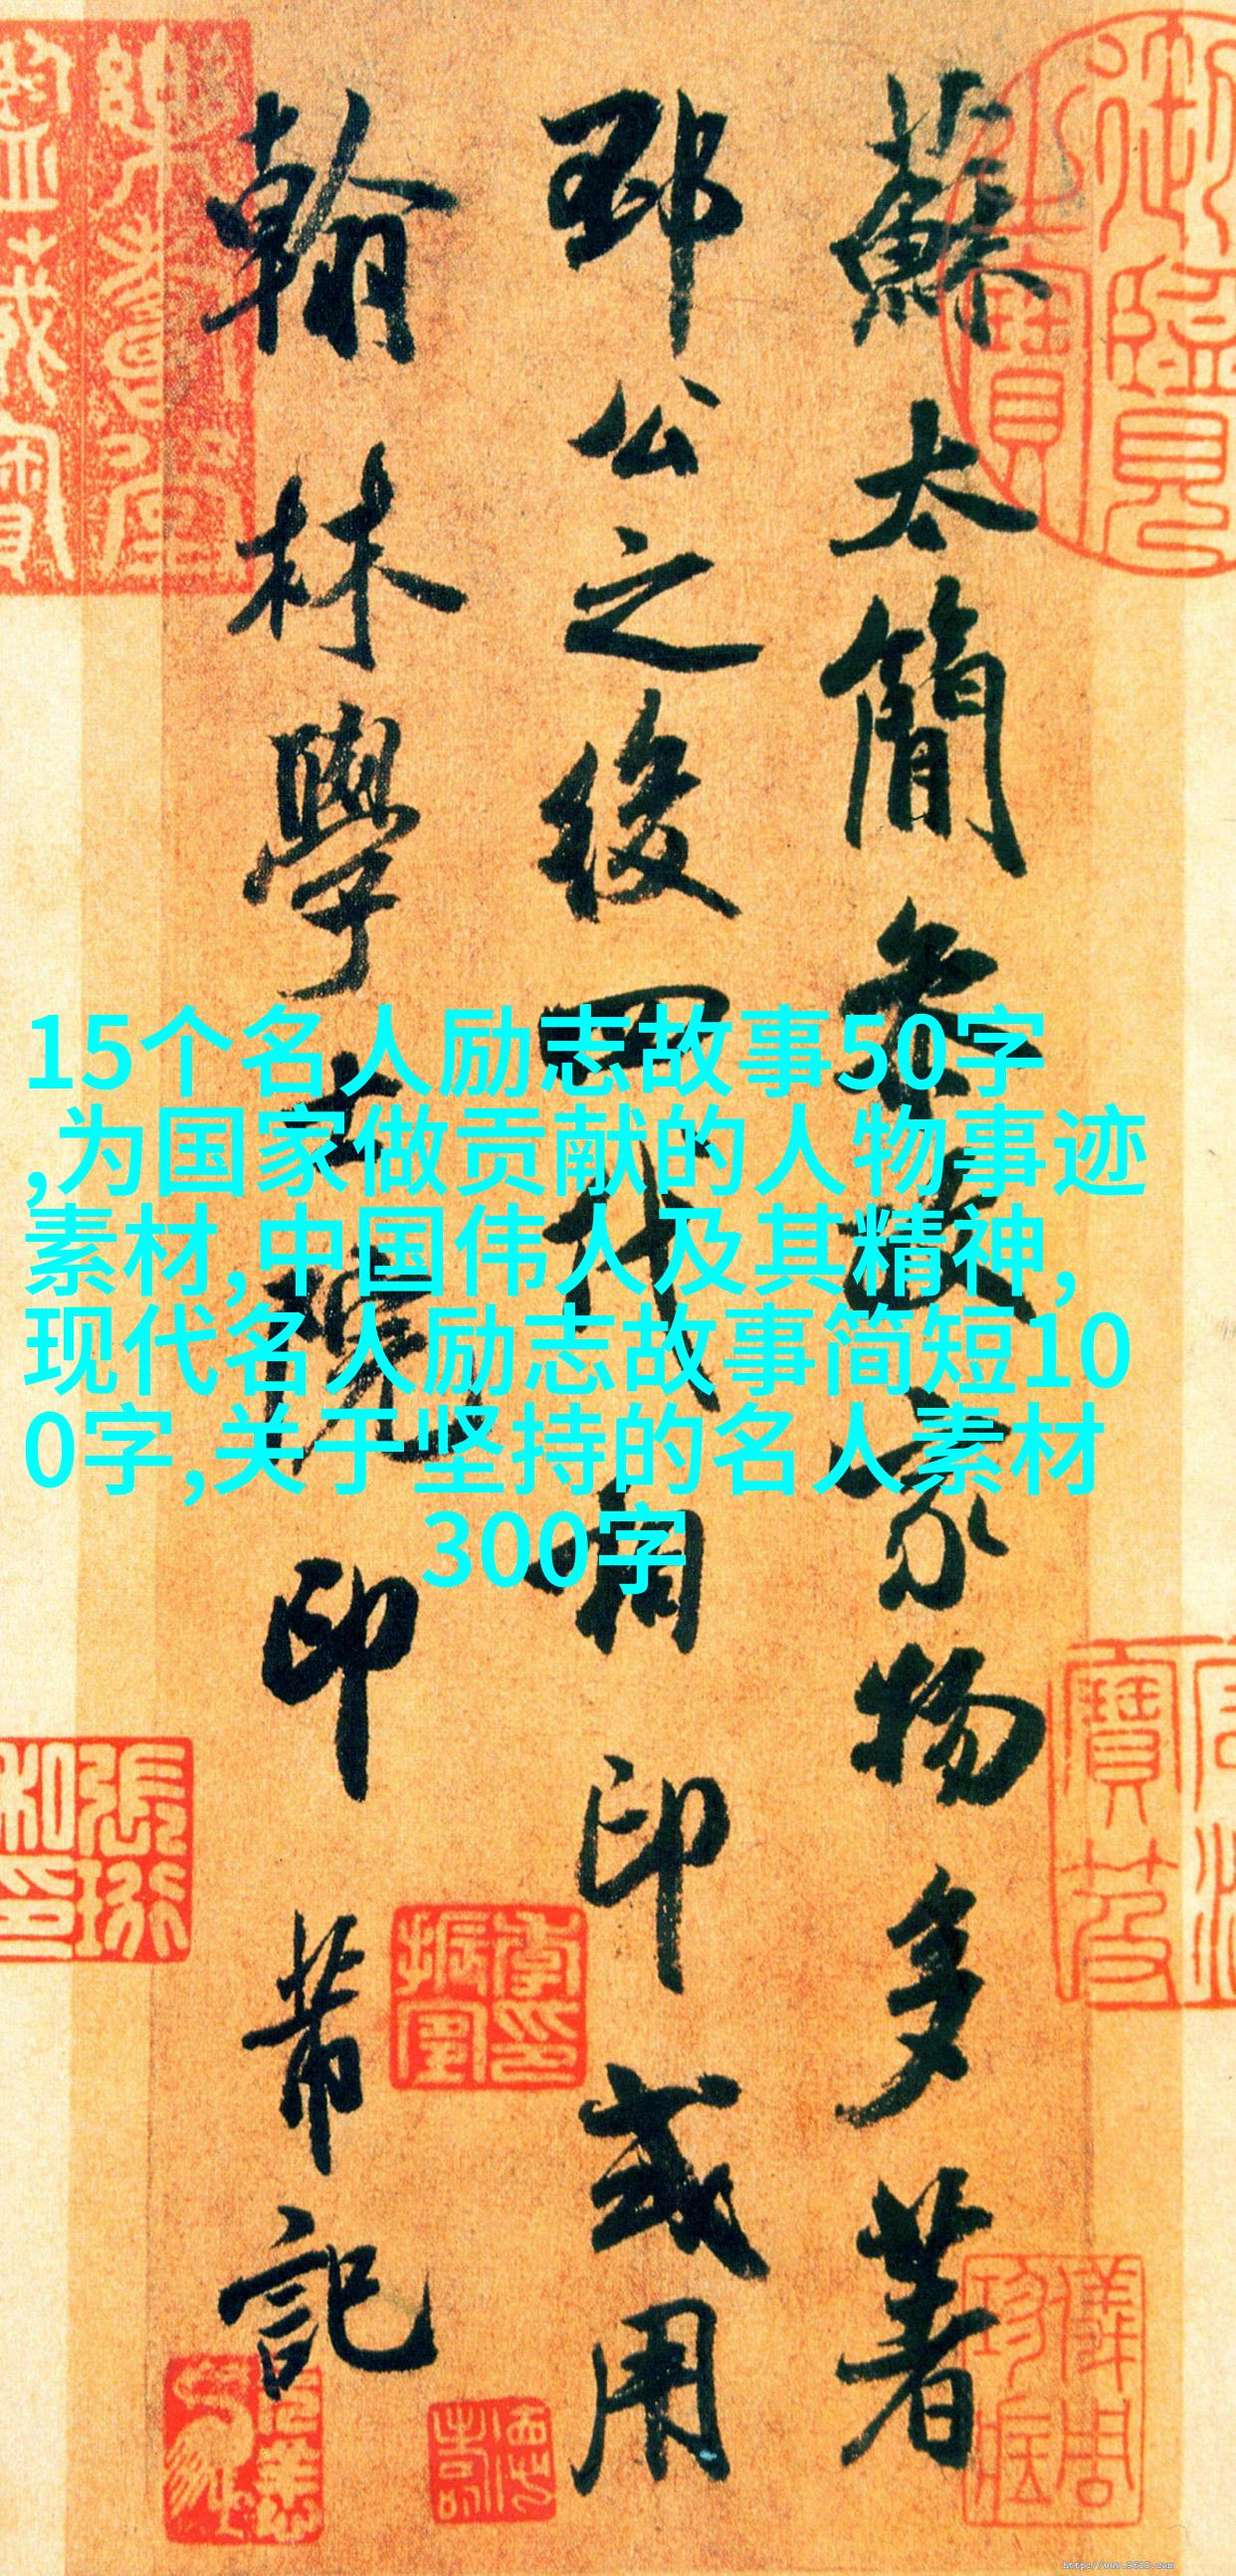 蘇太簡參政家物多著
邳公之後四代相印或用
翰林學士院印芾記
15个名人励志故事50字
,为国家做贡献的人物事迹
素材,中国伟人及其精神,
现代名人励志故事简短10
0字,关于坚持的名人素材
300字